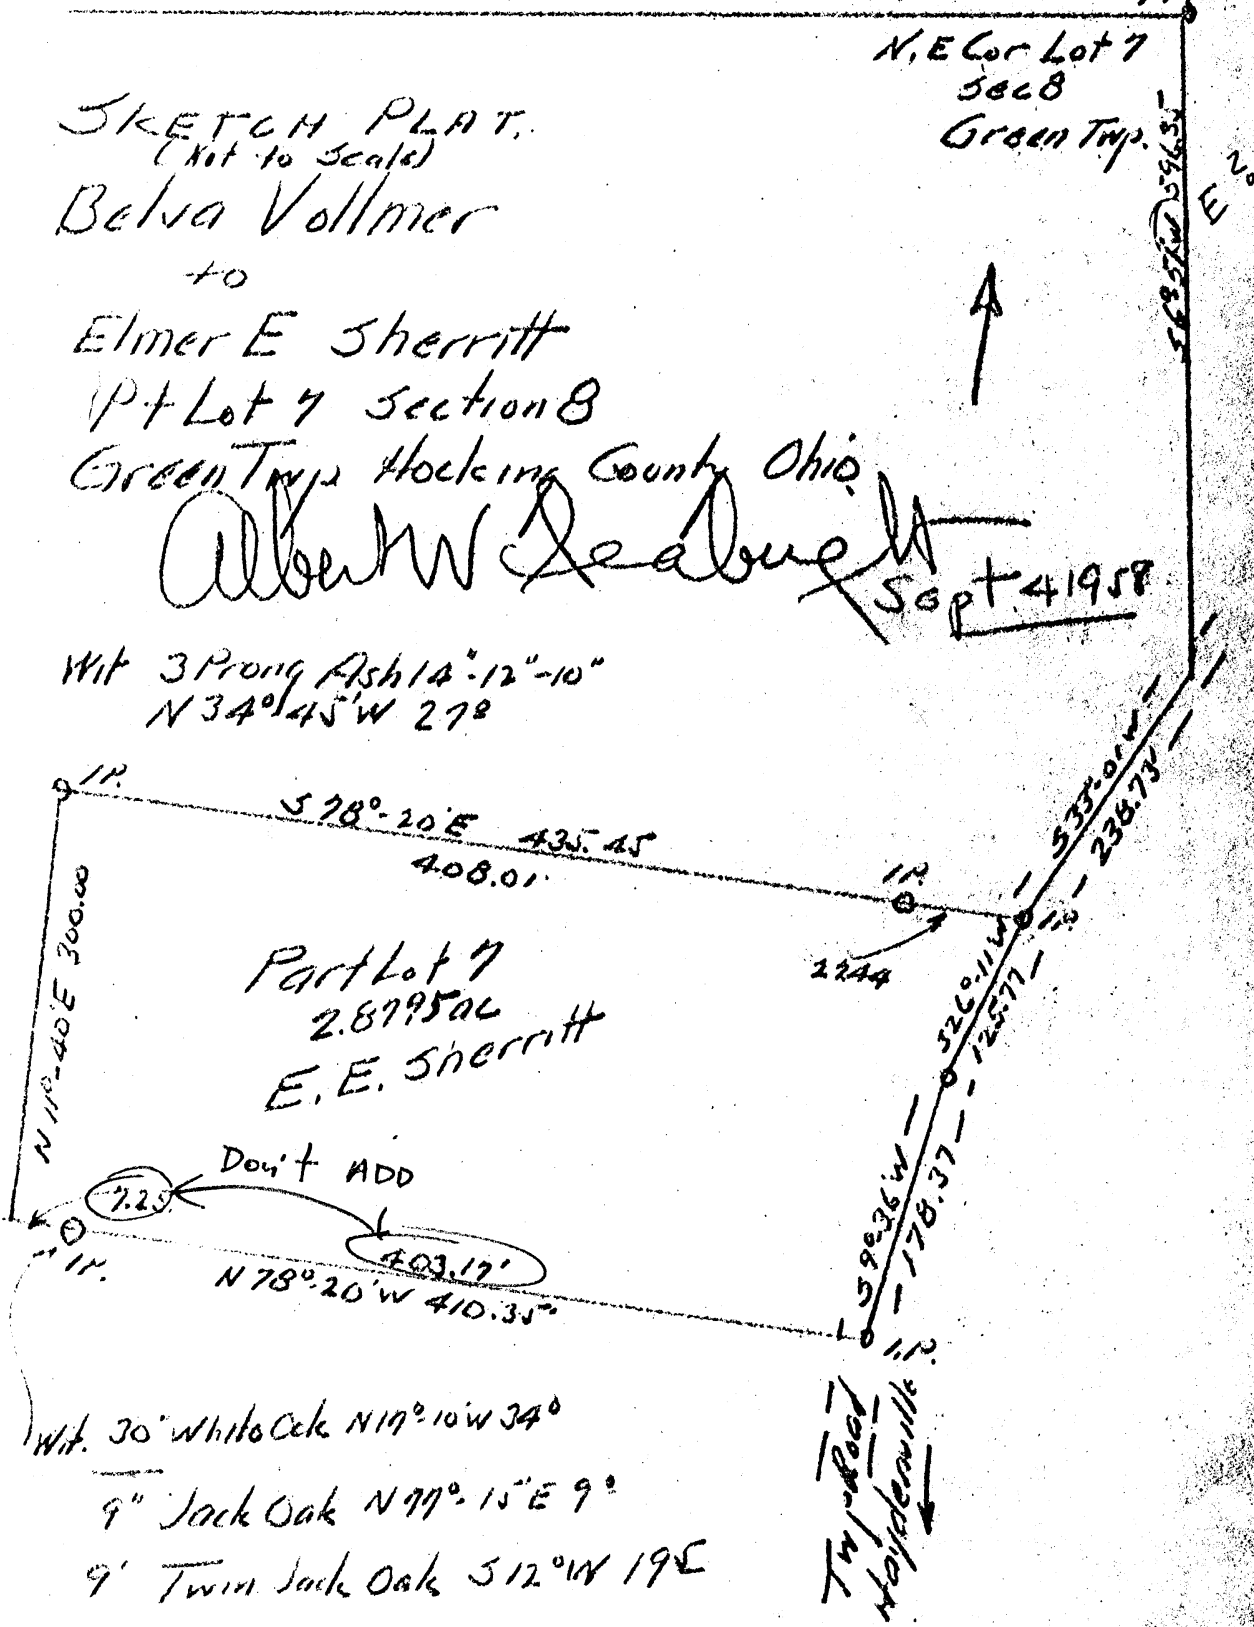 N.E Cor Lot 7
Sec 8
Green Twp.
SKETCH PLAT.
(Not to Scale)
Belva Vollmer
to
Elmer E Sherritt
Pt Lot 7 Section 8
Green Twp Hocking County Ohio
Albert W Seabright
Sept 4 1958
596.35
E
Wit 3 Prong Ash 14"-12"-10"
N 34° 45' W 27⁸
I.P.
S 78°-20' E 435.45
408.01
I.P.
I.P.
2744
S33°-01'W
238.73'
S26°-11'W
125.77
N 11°-40'E 300.00
Part Lot 7
2.8795 ac
E. E. Sherritt
Don't ADD
7.25
403.17'
I.P.
N 78°-20' W 410.35'
S9°-36'W
178.37
I.P.
Wit. 30" White Oak N17°-10'W 34⁰
9" Jack Oak N 77°-15' E 9⁰
9" Twin Jack Oak S 12° W 19⁵
Twp Road
Haydenville